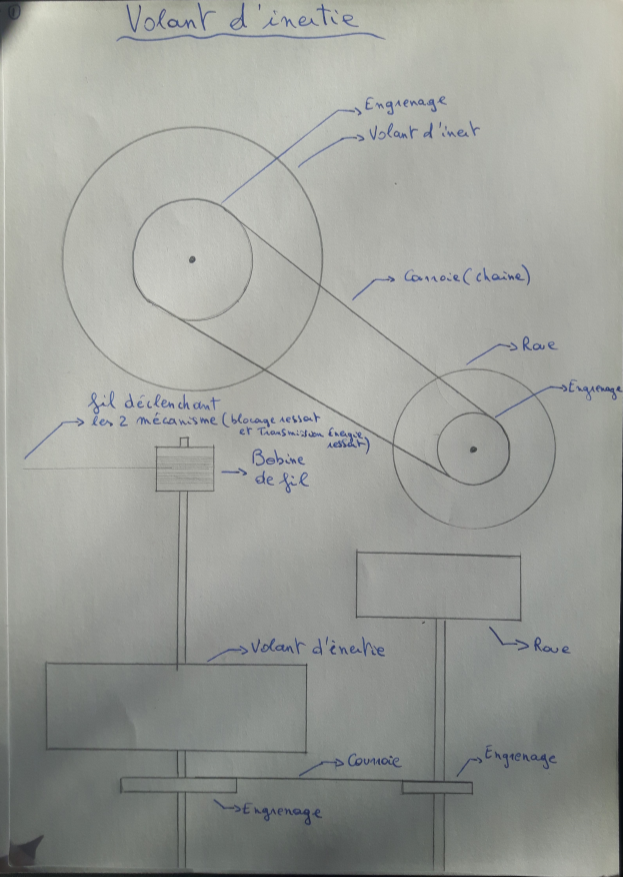 Volant d'inertie
Engrenage
Volant d'inert
Carroie (chaine)
Roue
Engrenage
fil déclenchant
les 2 mécanisme (blocage ressort
et Transmission Énergie
ressort)
Bobine
de fil
Volant d'inertie
Roue
Courroie
Engrenage
Engrenage